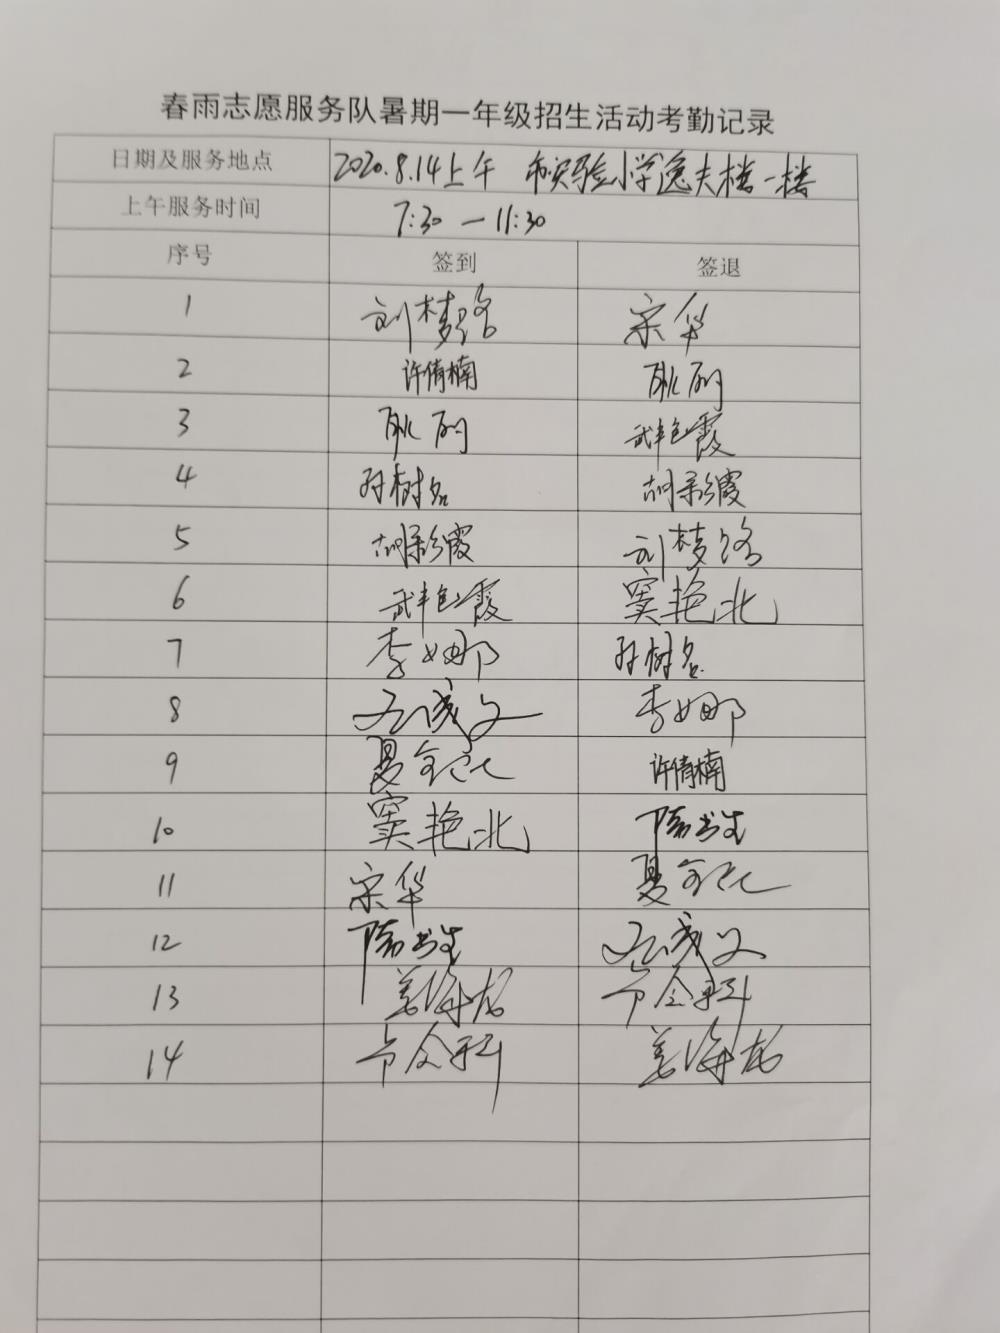 春雨志愿服务队暑期一年级招生活动考勤记录
日期及服务地点 2020.8.14上午 市实验小学逸夫楼一楼
上午服务时间 7:30 — 11:30
序号 签到 签退
1 刘梦路 宋华
2 许倩楠 耿丽
3 耿丽 武艳霞
4 孙树名 胡彩霞
5 胡彩霞 刘梦路
6 武艳霞 窦艳北
7 李娜 孙树名
8 李娜
9 夏 许倩楠
10 窦艳北 隋书生
11 宋华 夏
12 隋书生
13 姜海龙
14 姜海龙